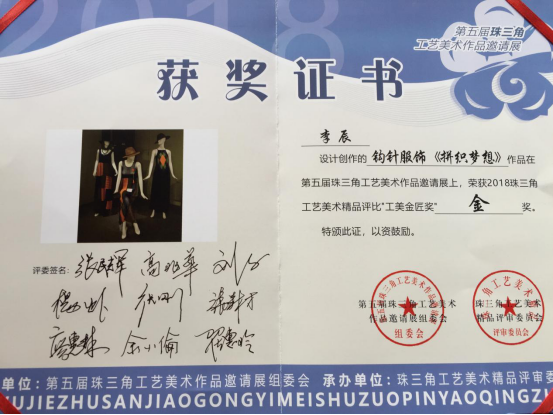 2018
第五届珠三角
工艺美术作品邀请展
获奖证书
李辰
设计创作的 钩针服饰《拼织梦想》作品在
第五届珠三角工艺美术作品邀请展上，荣获2018珠三角
工艺美术精品评比"工美金匠奖" 金 奖。
特颁此证，以资鼓励。
评委签名：
第五届珠三角工艺美术
作品邀请展组委会
组委会
珠三角工艺美术
精品评审委员会
评审委员会
单位：第五届珠三角工艺美术作品邀请展组委会 承办单位：珠三角工艺美术精品评审委
UJIEZHUSANJIAOGONGYIMEISHUZUOPINYAOQINGZ